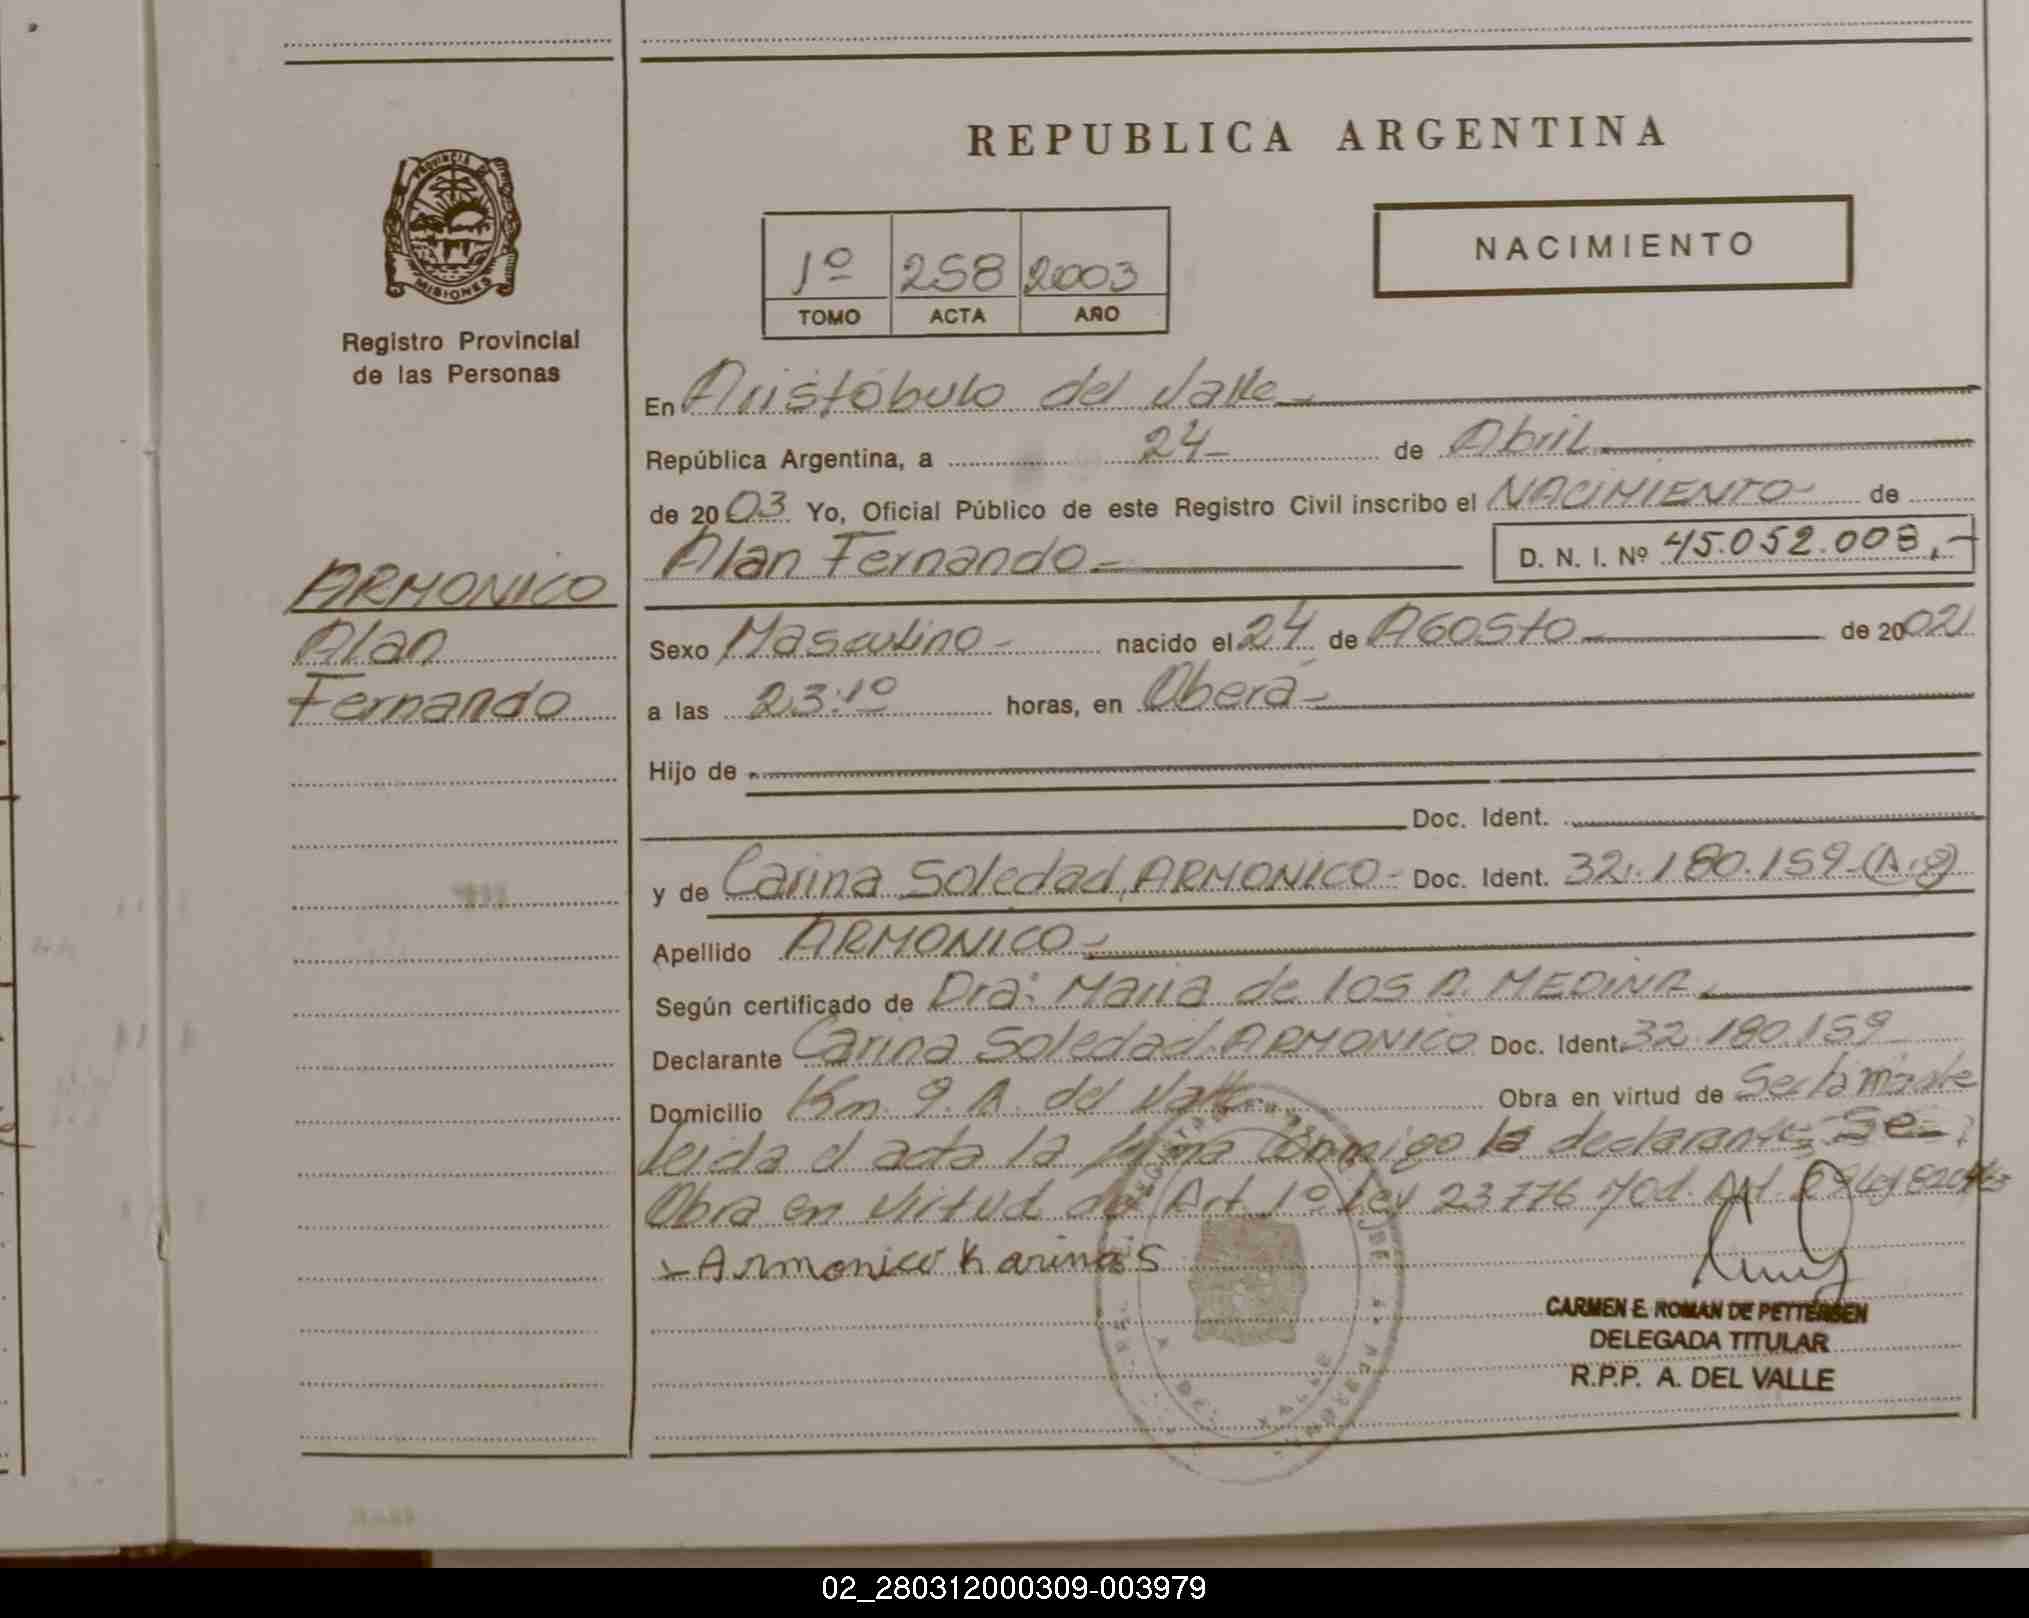 REPUBLICA ARGENTINA
PROVINCIA DE
MISIONES
Registro Provincial
de las Personas
NACIMIENTO
1º 258 2003
TOMO ACTA AÑO
En Aristóbulo del Valle
República Argentina, a 24 de Abril
de 2003 Yo, Oficial Público de este Registro Civil inscribo el NACIMIENTO de
Alan Fernando D. N. I. Nº 45.052.008
ARMONICO
Alan
Fernando
Sexo Masculino nacido el 24 de AGOSTO de 2002
a las 23:10 horas, en Oberá
Hijo de
Doc. Ident.
y de Carina Soledad ARMONICO Doc. Ident. 32.180.159
Apellido ARMONICO
Según certificado de Dra: Maria de los A. MEDINA
Declarante Carina Soledad ARMONICO Doc. Ident. 32.180.159
Domicilio Km. 9. A. del Valle Obra en virtud de
leida el acta la firma conmigo la declarante Se
Obra en virtud del Art. 1º Ley 23776 Mod. Art
Armonico Karina S
CARMEN E. ROMAN DE PETTERSEN
DELEGADA TITULAR
R.P.P. A. DEL VALLE
A. DEL VALLE
02_280312000309-003979